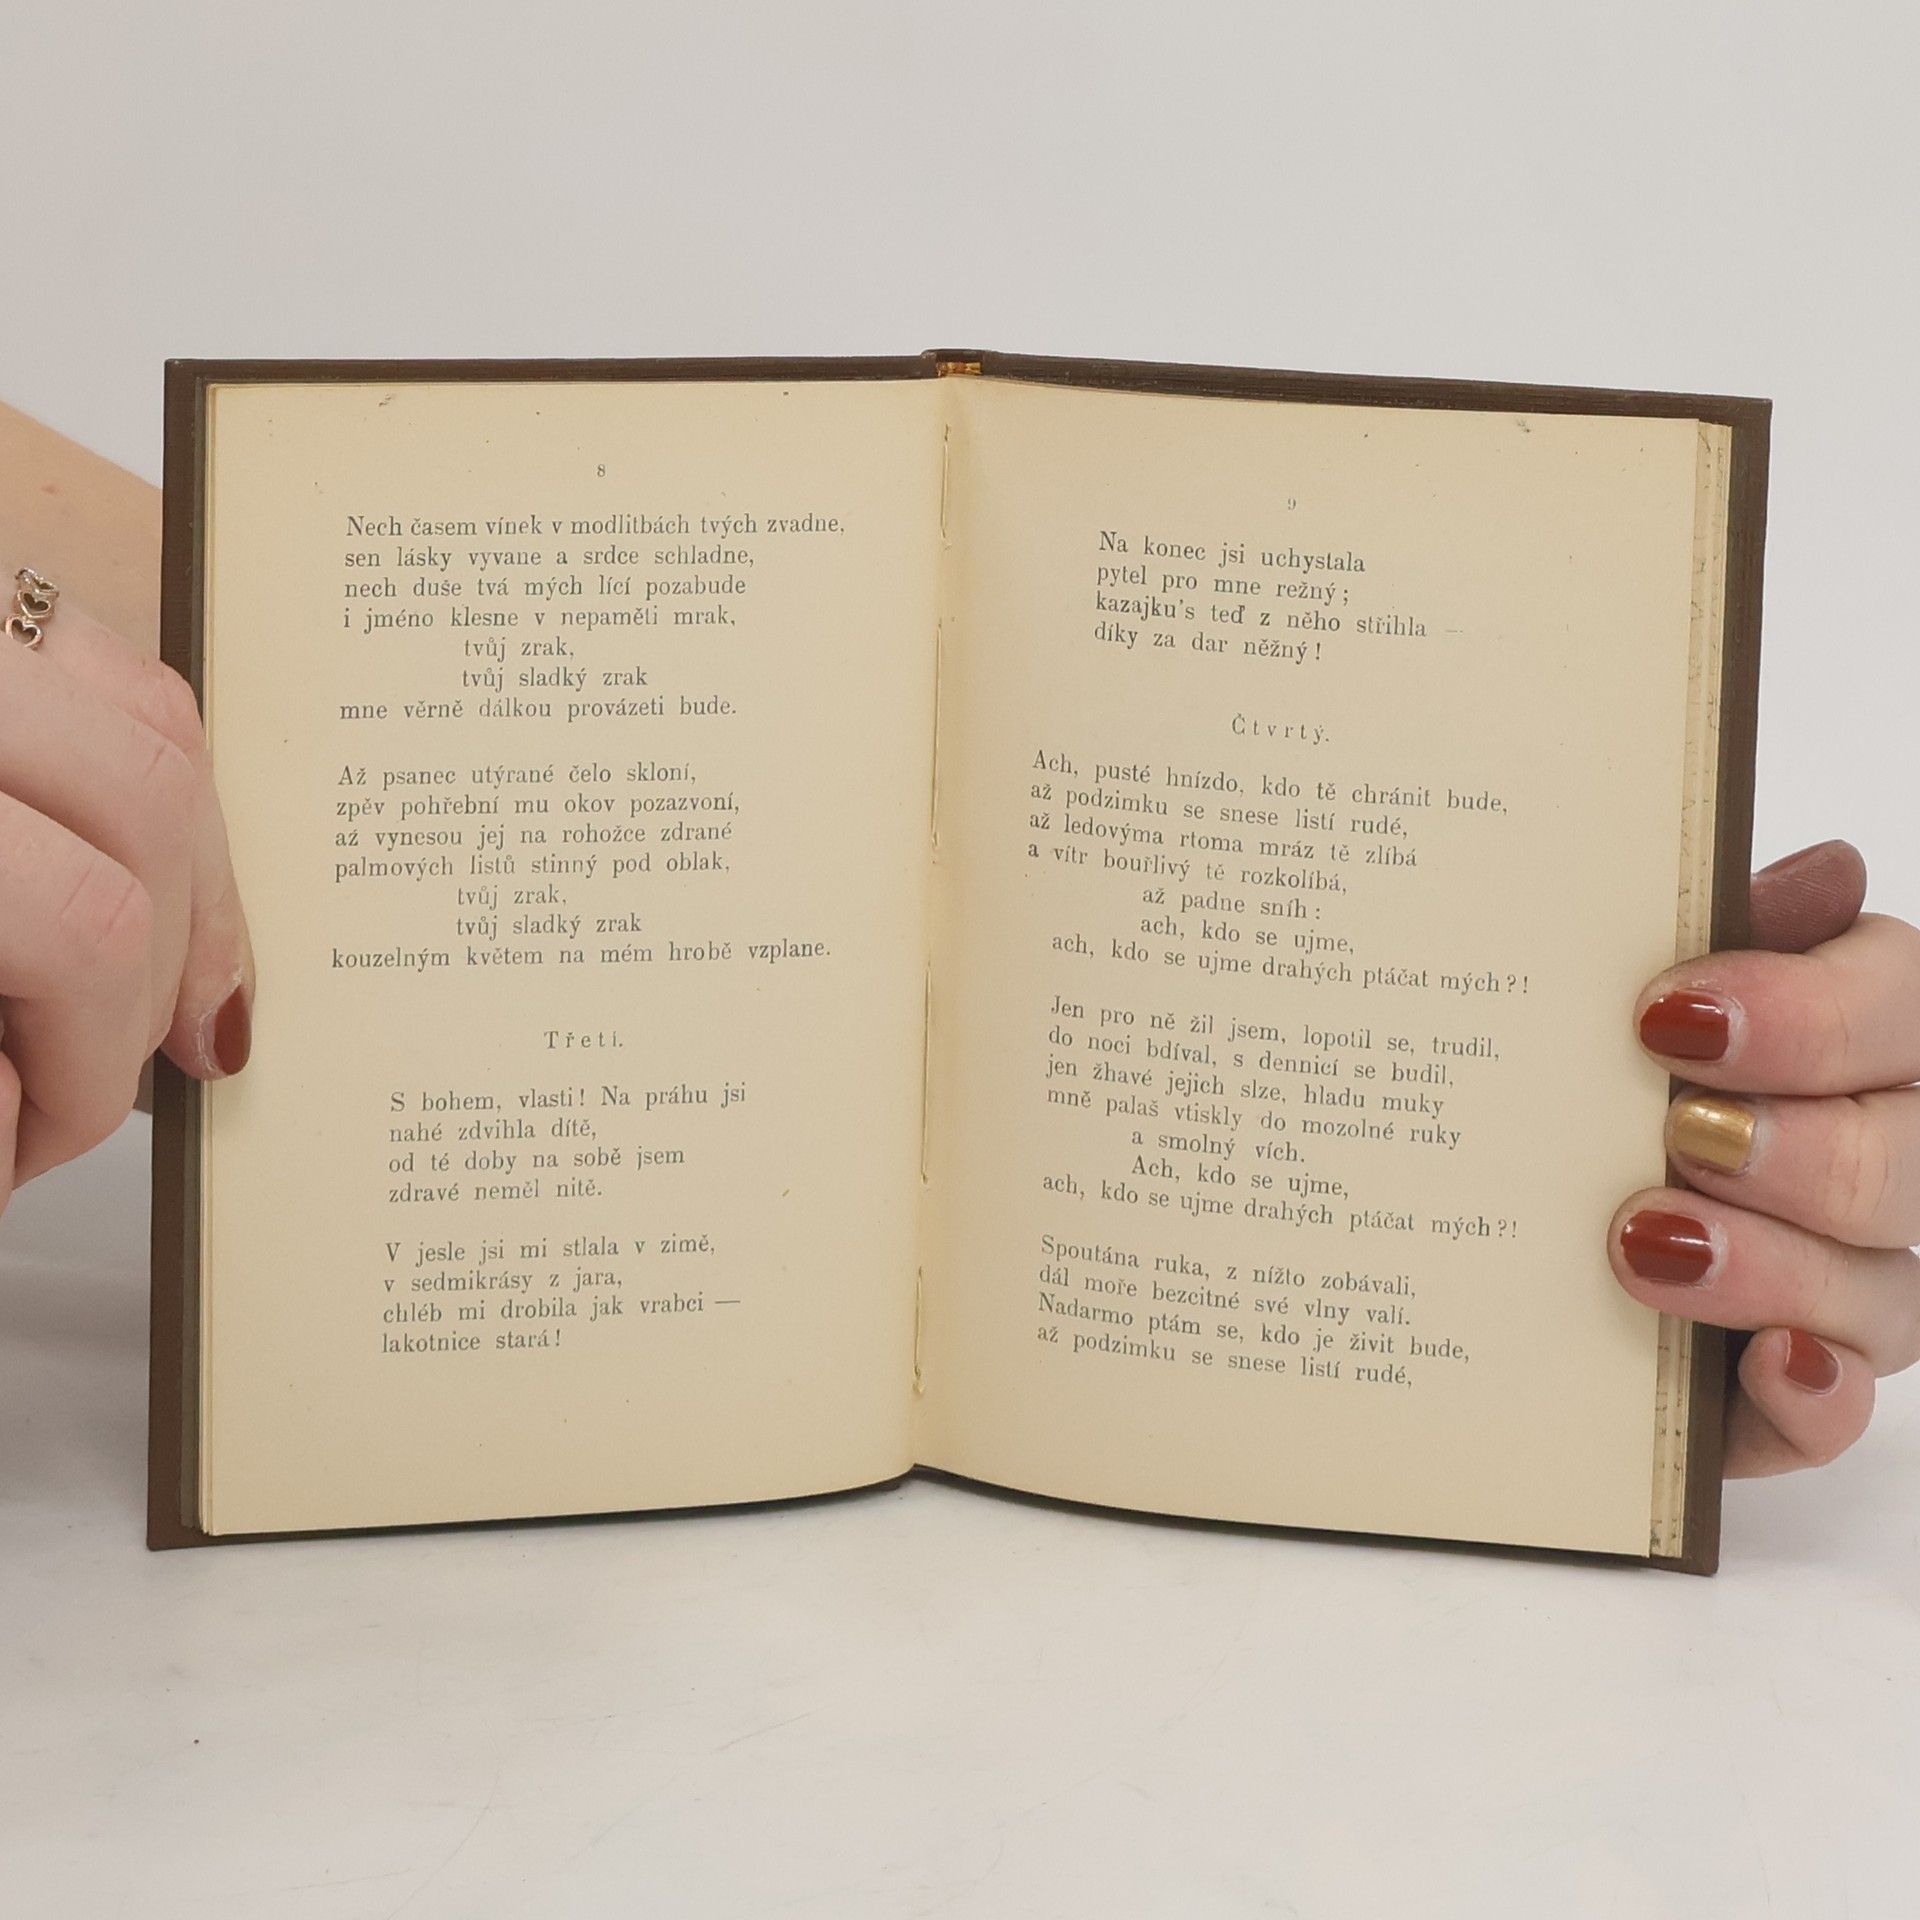 8
Nech časem vínek v modlitbách tvých zvadne,
sen lásky vyvane a srdce schladne,
nech duše tvá mých lící pozabude
i jméno klesne v nepaměti mrak,
tvůj zrak,
tvůj sladký zrak
mne věrně dálkou provázeti bude.
Až psanec utýrané čelo skloní,
zpěv pohřební mu okov pozazvoní,
až vynesou jej na rohožce zdrané
palmových listů stinný pod oblak,
tvůj zrak,
tvůj sladký zrak
kouzelným květem na mém hrobě vzplane.
Třetí.
S bohem, vlasti! Na práhu jsi
nahé zdvihla dítě,
od té doby na sobě jsem
zdravé neměl nitě.
V jesle jsi mi stlala v zimě,
v sedmikrásy z jara,
chléb mi drobila jak vrabci —
lakotnice stará!
9
Na konec jsi uchystala
pytel pro mne režný;
kazajku's teď z něho střihla —
díky za dar něžný!
Čtvrtý.
Ach, pusté hnízdo, kdo tě chrániť bude,
až podzimku se snese listí rudé,
až ledovýma rtoma mráz tě zlíbá
a vítr bouřlivý tě rozkolíbá,
až padne sníh:
ach, kdo se ujme,
ach, kdo se ujme drahých ptáčat mých?!
Jen pro ně žil jsem, lopotil se, trudil,
do noci bdíval, s dennicí se budil,
jen žhavé jejich slze, hladu muky
mně palaš vtiskly do mozolné ruky
a smolný vích.
Ach, kdo se ujme,
ach, kdo se ujme drahých ptáčat mých?!
Spoutána ruka, z nížto zobávali,
dál moře bezcitné své vlny valí.
Nadarmo ptám se, kdo je živit bude,
až podzimku se snese listí rudé,